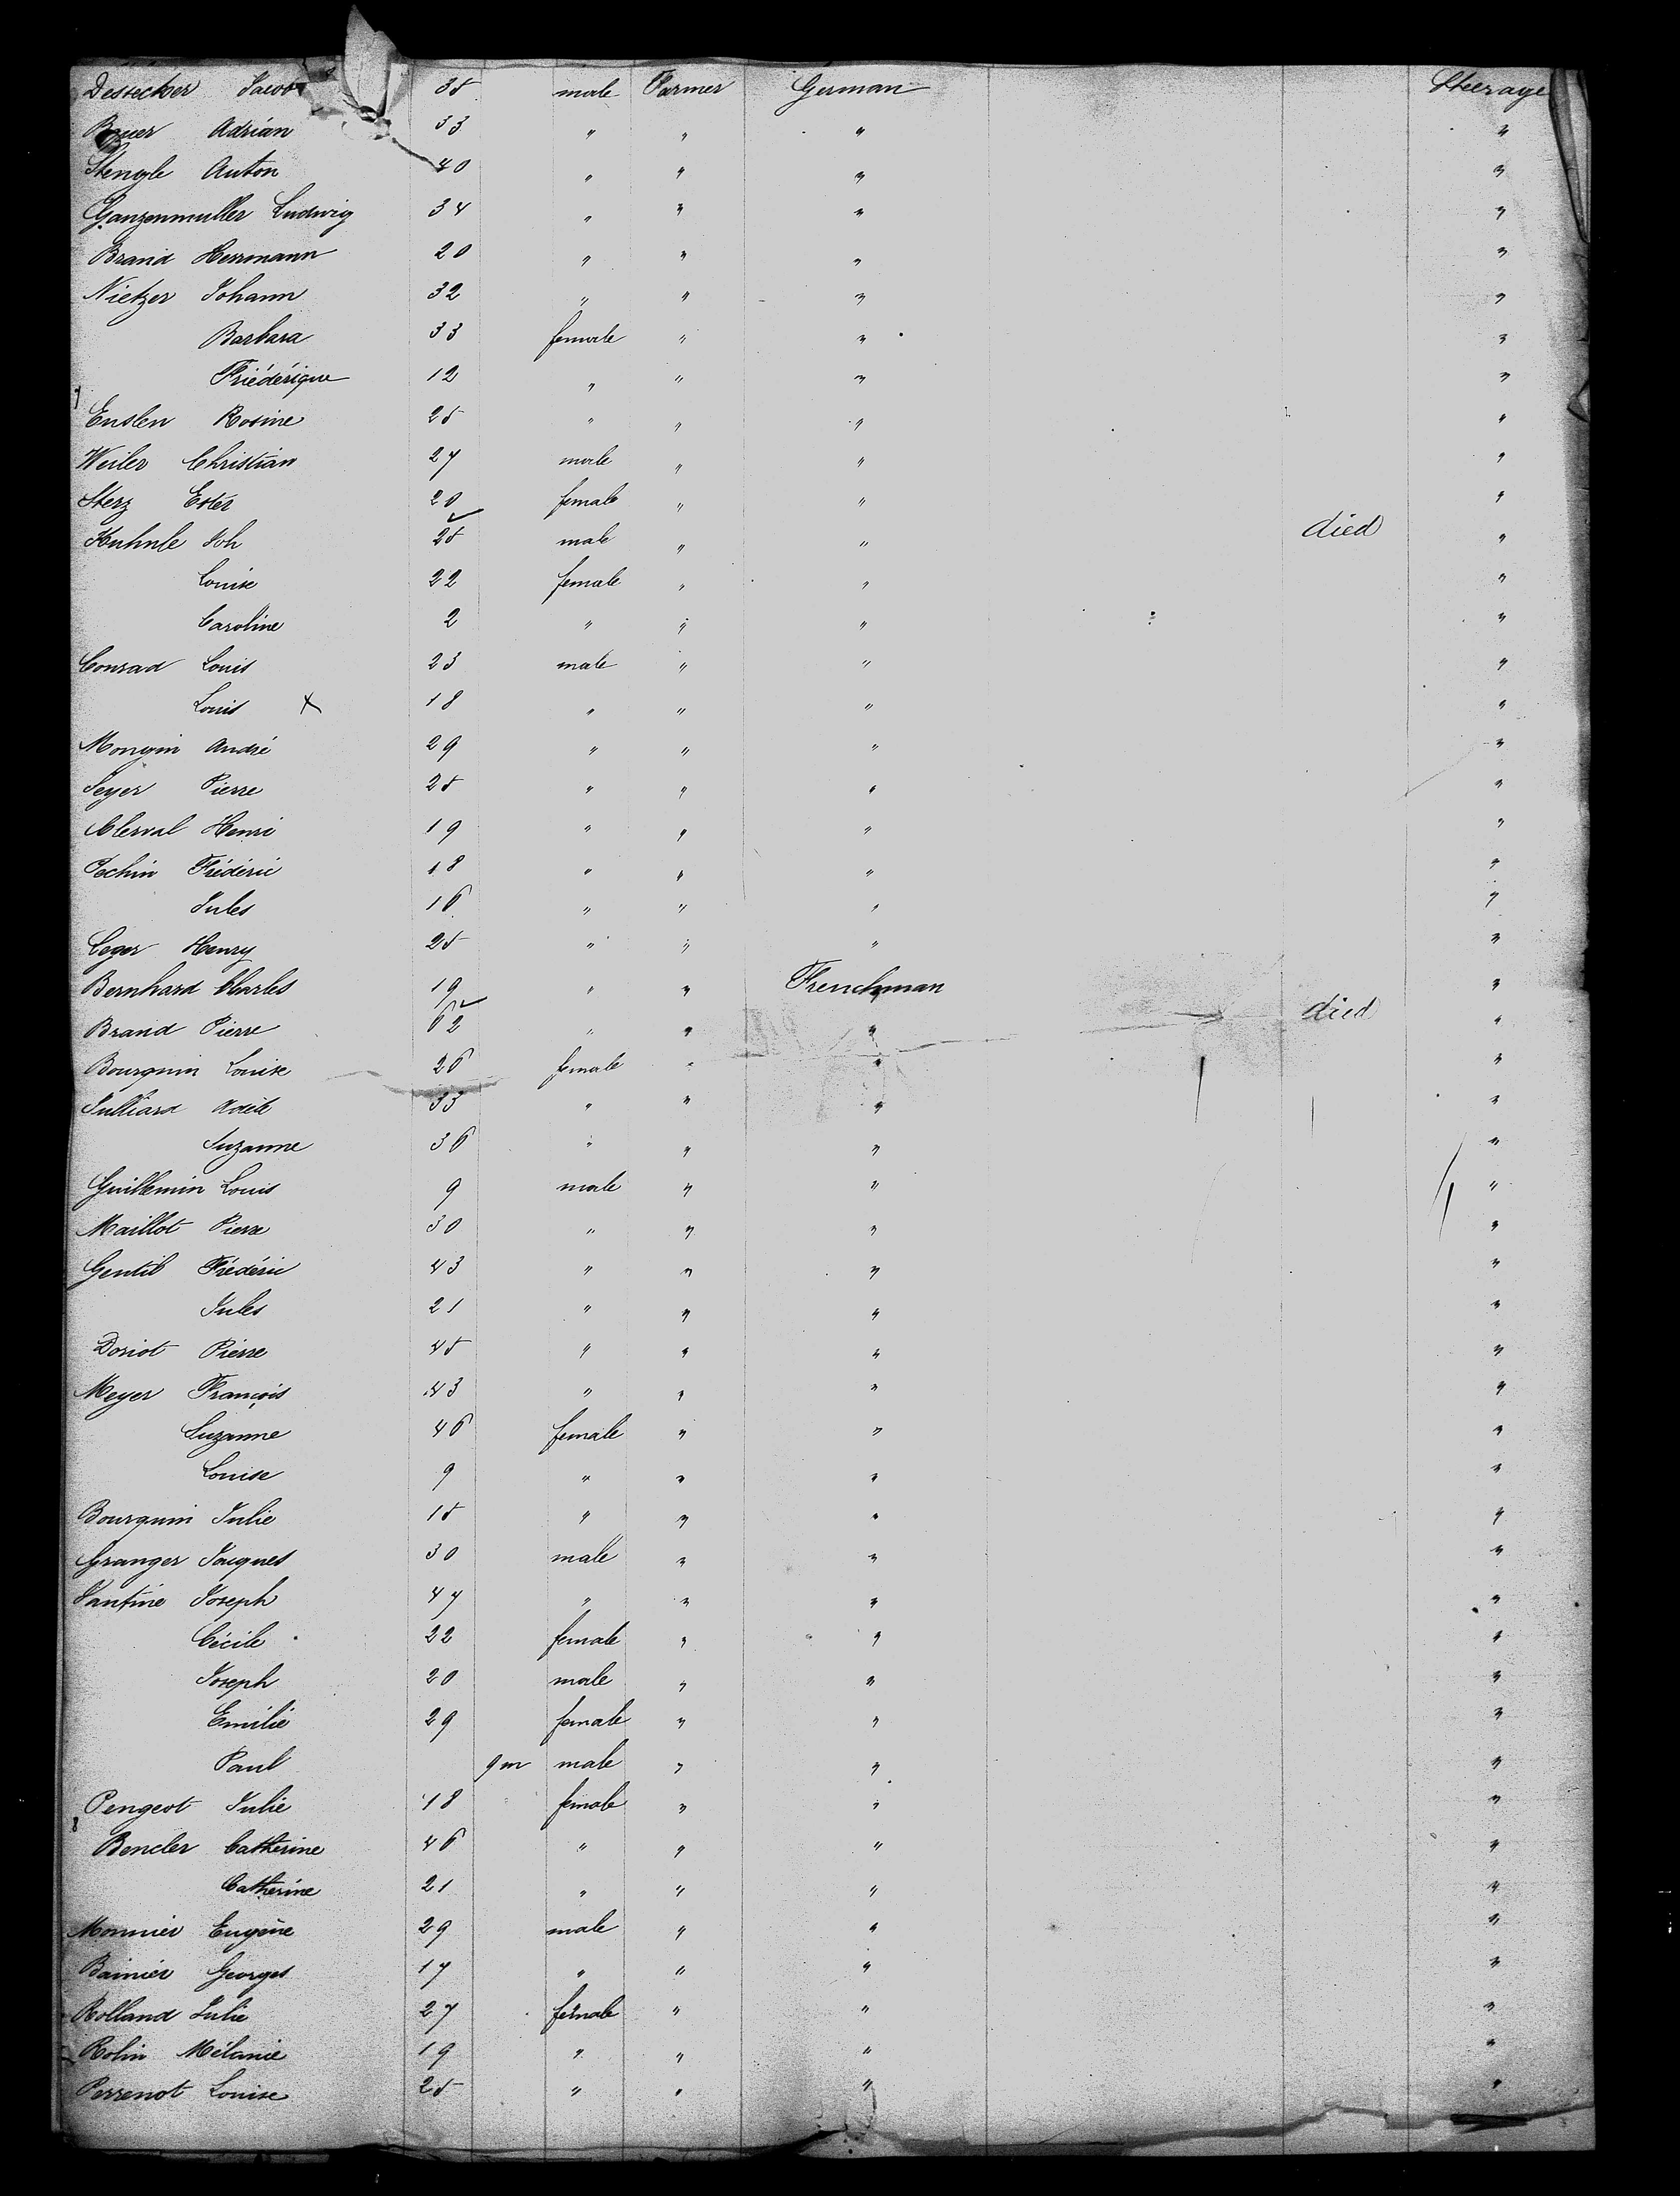 Dessecker Jacob 35 male Farmer German Steerage
Bauer Adrian 33 " " " "
Stengle Anton 40 " " " "
Ganzenmuller Ludwig 34 " " " "
Brand Herrmann 20 " " " "
Nietzer Johann 32 " " " "
Barbara 33 female " " "
Friédérique 12 " " " "
Enslen Rosine 25 " " " "
Weiler Christian 27 male " " "
Sterz Ester 20 female " " "
Kuhnle Joh 25 male " " died "
Louise 22 female " " "
Caroline 2 " " " "
Conrad Louis 23 male " " "
Louis x 18 " " " "
Mongin André 29 " " " "
Seyer Pierre 25 " " " "
Clerval Henri 19 " " " "
Pechin Frédéric 18 " " " "
Jules 16 " " " "
Leger Henry 25 " " " "
Bernhard Charles 19 " " Frenchman "
Brand Pierre 62 " " " died "
Bourquin Louise 26 female " " "
Julliard Adèle 33 " " " "
Suzanne 36 " " " "
Guillemin Louis 9 male " " "
Maillot Pierre 30 " " " "
Gentil Frédéric 43 " " " "
Jules 21 " " " "
Doriot Pierre 45 " " " "
Meyer François 43 " " " "
Suzanne 46 female " " "
Louise 9 " " " "
Bourquin Julie 15 " " " "
Granger Jacques 30 male " " "
Joseph 47 " " " "
Cécile 22 female " " "
Joseph 20 male " " "
Emilie 29 female " " "
Paul 9 m male " " "
Peugeot Julie 18 female " " "
Bencler Catherine 46 " " " "
Catherine 21 " " " "
Monnier Eugène 29 male " " "
Bainier Georges 17 " " " "
Rolland Julie 27 female " " "
Rolin Mélanie 19 " " " "
Perrenot Louise 25 " " " "